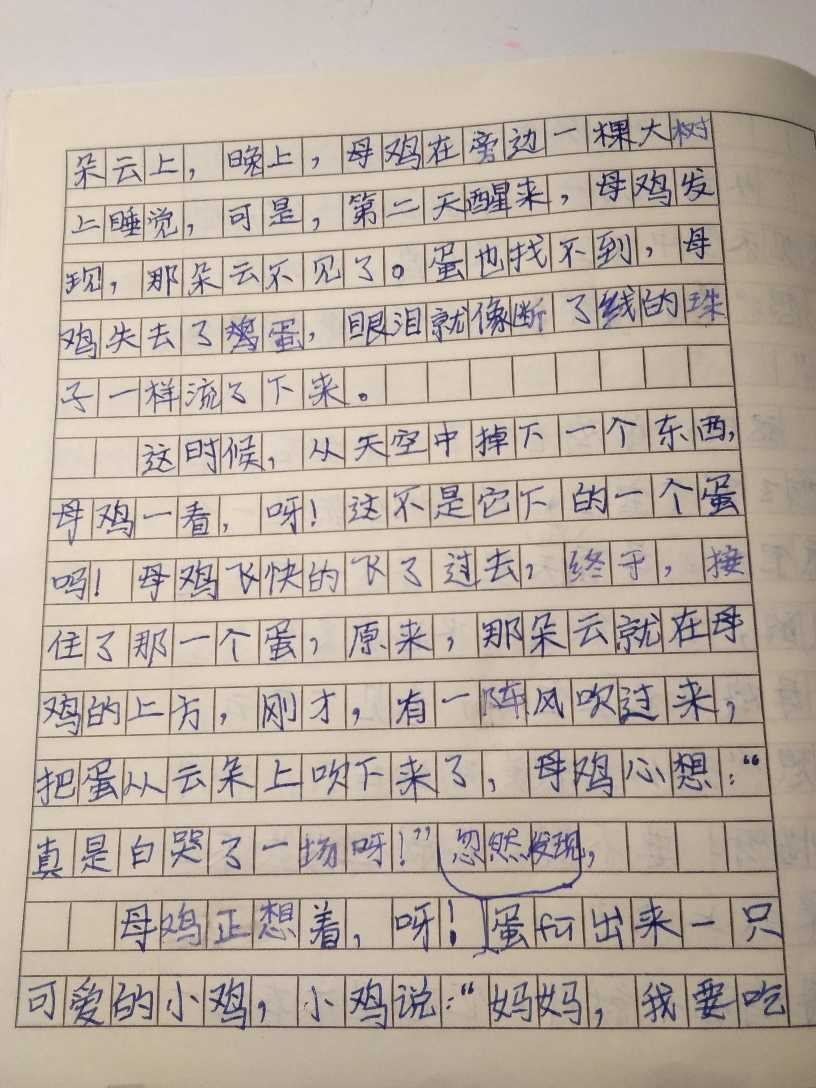 朵云上，晚上，母鸡在旁边一棵大树
上睡觉，可是，第二天醒来，母鸡发
现，那朵云不见了。蛋也找不到，母
鸡失去了鸡蛋，眼泪就像断了线的珠
子一样流了下来。
这时候，从天空中掉下一个东西，
母鸡一看，呀！这不是它下的一个蛋
吗！母鸡飞快的飞了过去，终于，接
住了那一个蛋，原来，那朵云就在母
鸡的上方，刚才，有一阵风吹过来，
把蛋从云朵上吹下来了，母鸡心想：“
真是白哭了一场呀！”忽然发现，
母鸡正想着，呀！蛋fū出来一只
可爱的小鸡，小鸡说：“妈妈，我要吃